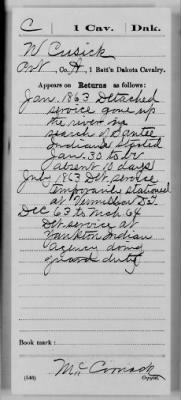 C 1 Cav. Dak.
W Cusick
Pvt, Co. A, 1 Batt'n Dakota Cavalry.
Appears on Returns as follows:
Jan. 1863 Detached
service gone up
the river in
search of Santee
Indians started
Jan. 30 to be
absent 10 days
July 1863 Det. service
temporarily stationed
at Vermillion D.T.
Dec 63 to Mch 64
Det. service at
Yankton Indian
Agency doing
guard duty
Book mark:
McComack
(546) Copyist.